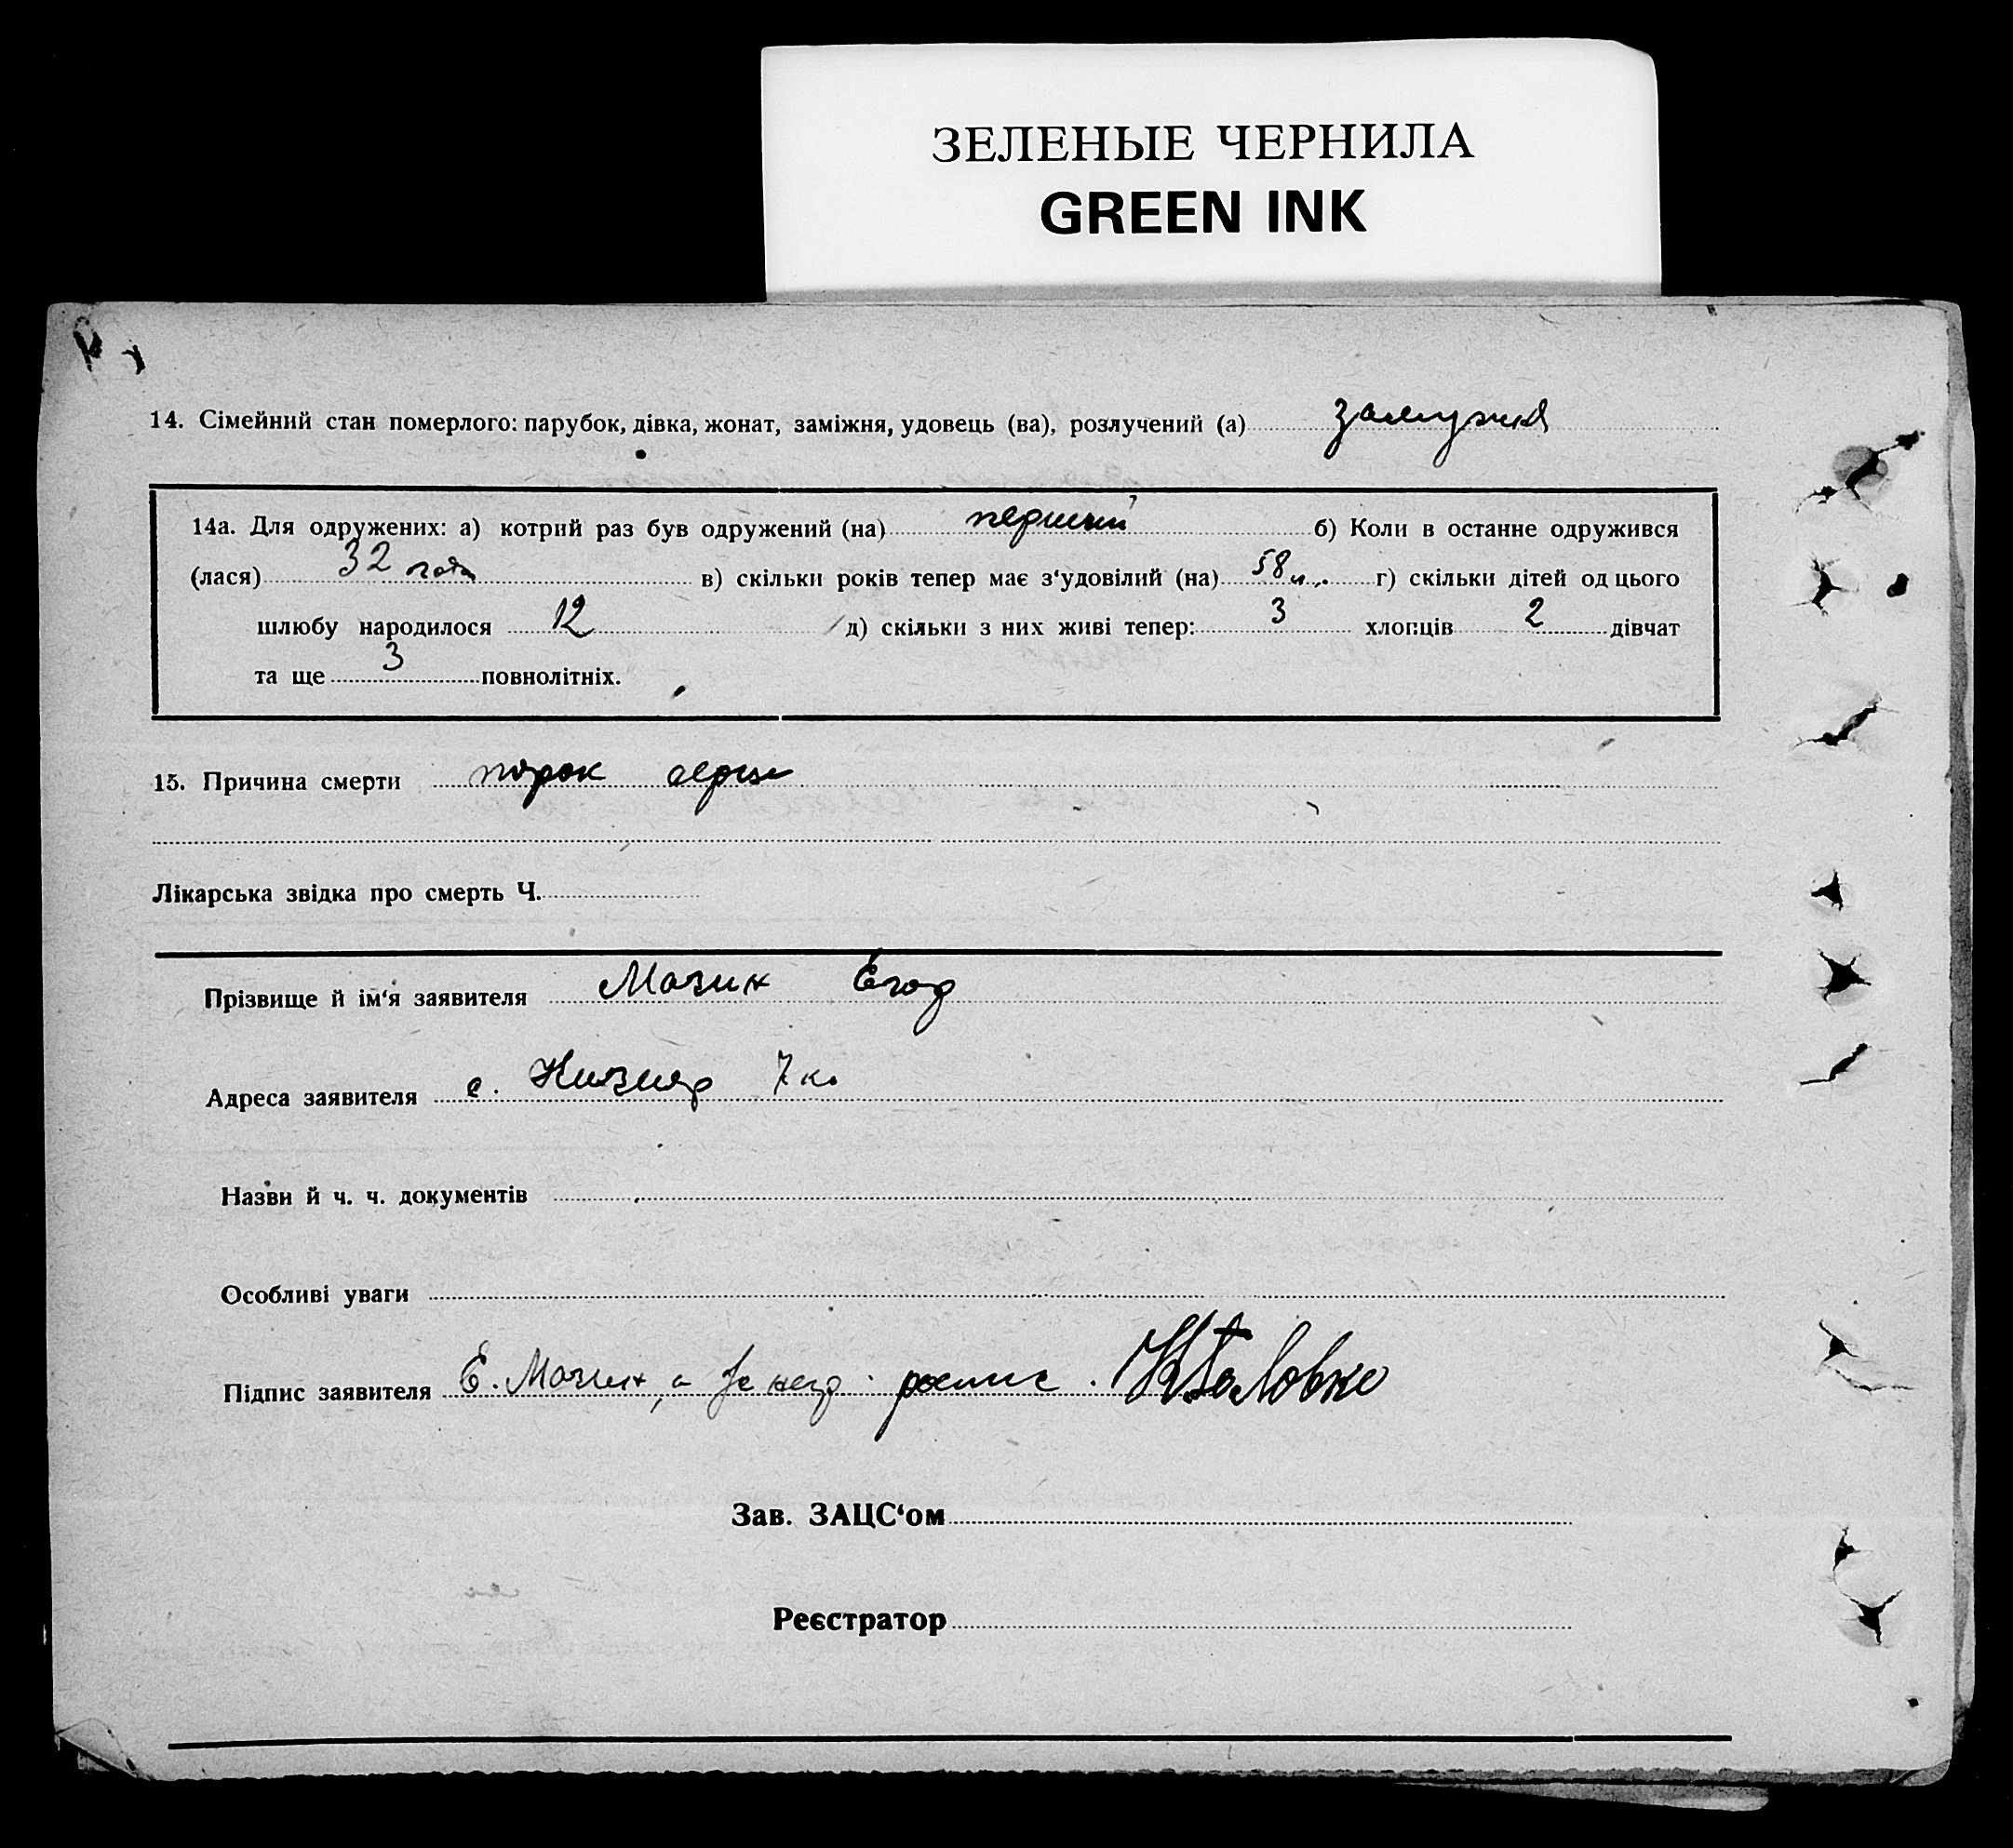 ЗЕЛЕНЫЕ ЧЕРНИЛА
GREEN INK
14. Сімейний стан померлого: парубок, дівка, жонат, заміжня, удовець (ва), розлучений (а) замужня
14а. Для одружених: а) котрий раз був одружений (на) перший б) Коли в останне одружився
(лася) 32 года в) скільки років тепер має з‘удовілий (на) 58 г) скільки дітей од цього
шлюбу народилося 12 д) скільки з них живі тепер: 3 хлопців 2 дівчат
та ще 3 повнолітніх.
15. Причина смерти порок серця
Лікарська звідка про смерть Ч.
Прізвище й ім‘я заявителя Мазин Егор
Адреса заявителя с. 7
Назви й ч. ч. документів
Особливі уваги
Підпис заявителя Е. Мазин, а
Зав. ЗАЦС‘ом
Реєстратор